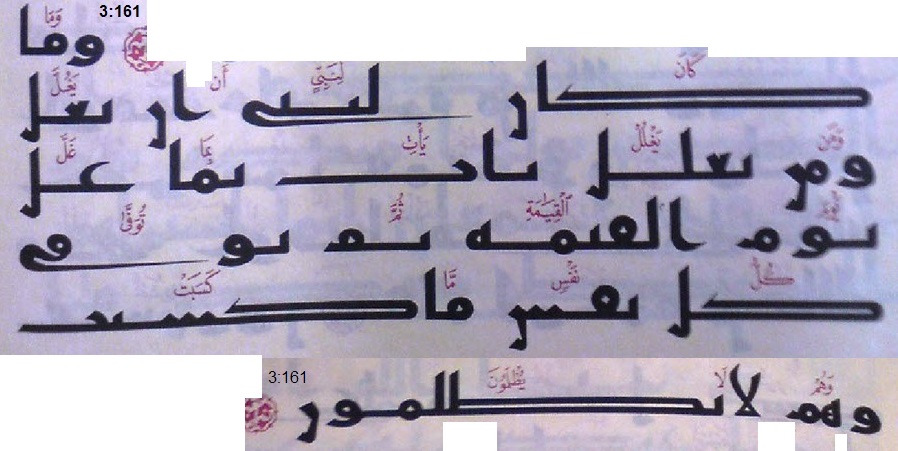 3:161
وما
كان لنبي أن يغل
ومن يغلل يأت بما غل
يوم القيمة ثم توفى
كل نفس ما كسبت
3:161
وهم لا يظلمون